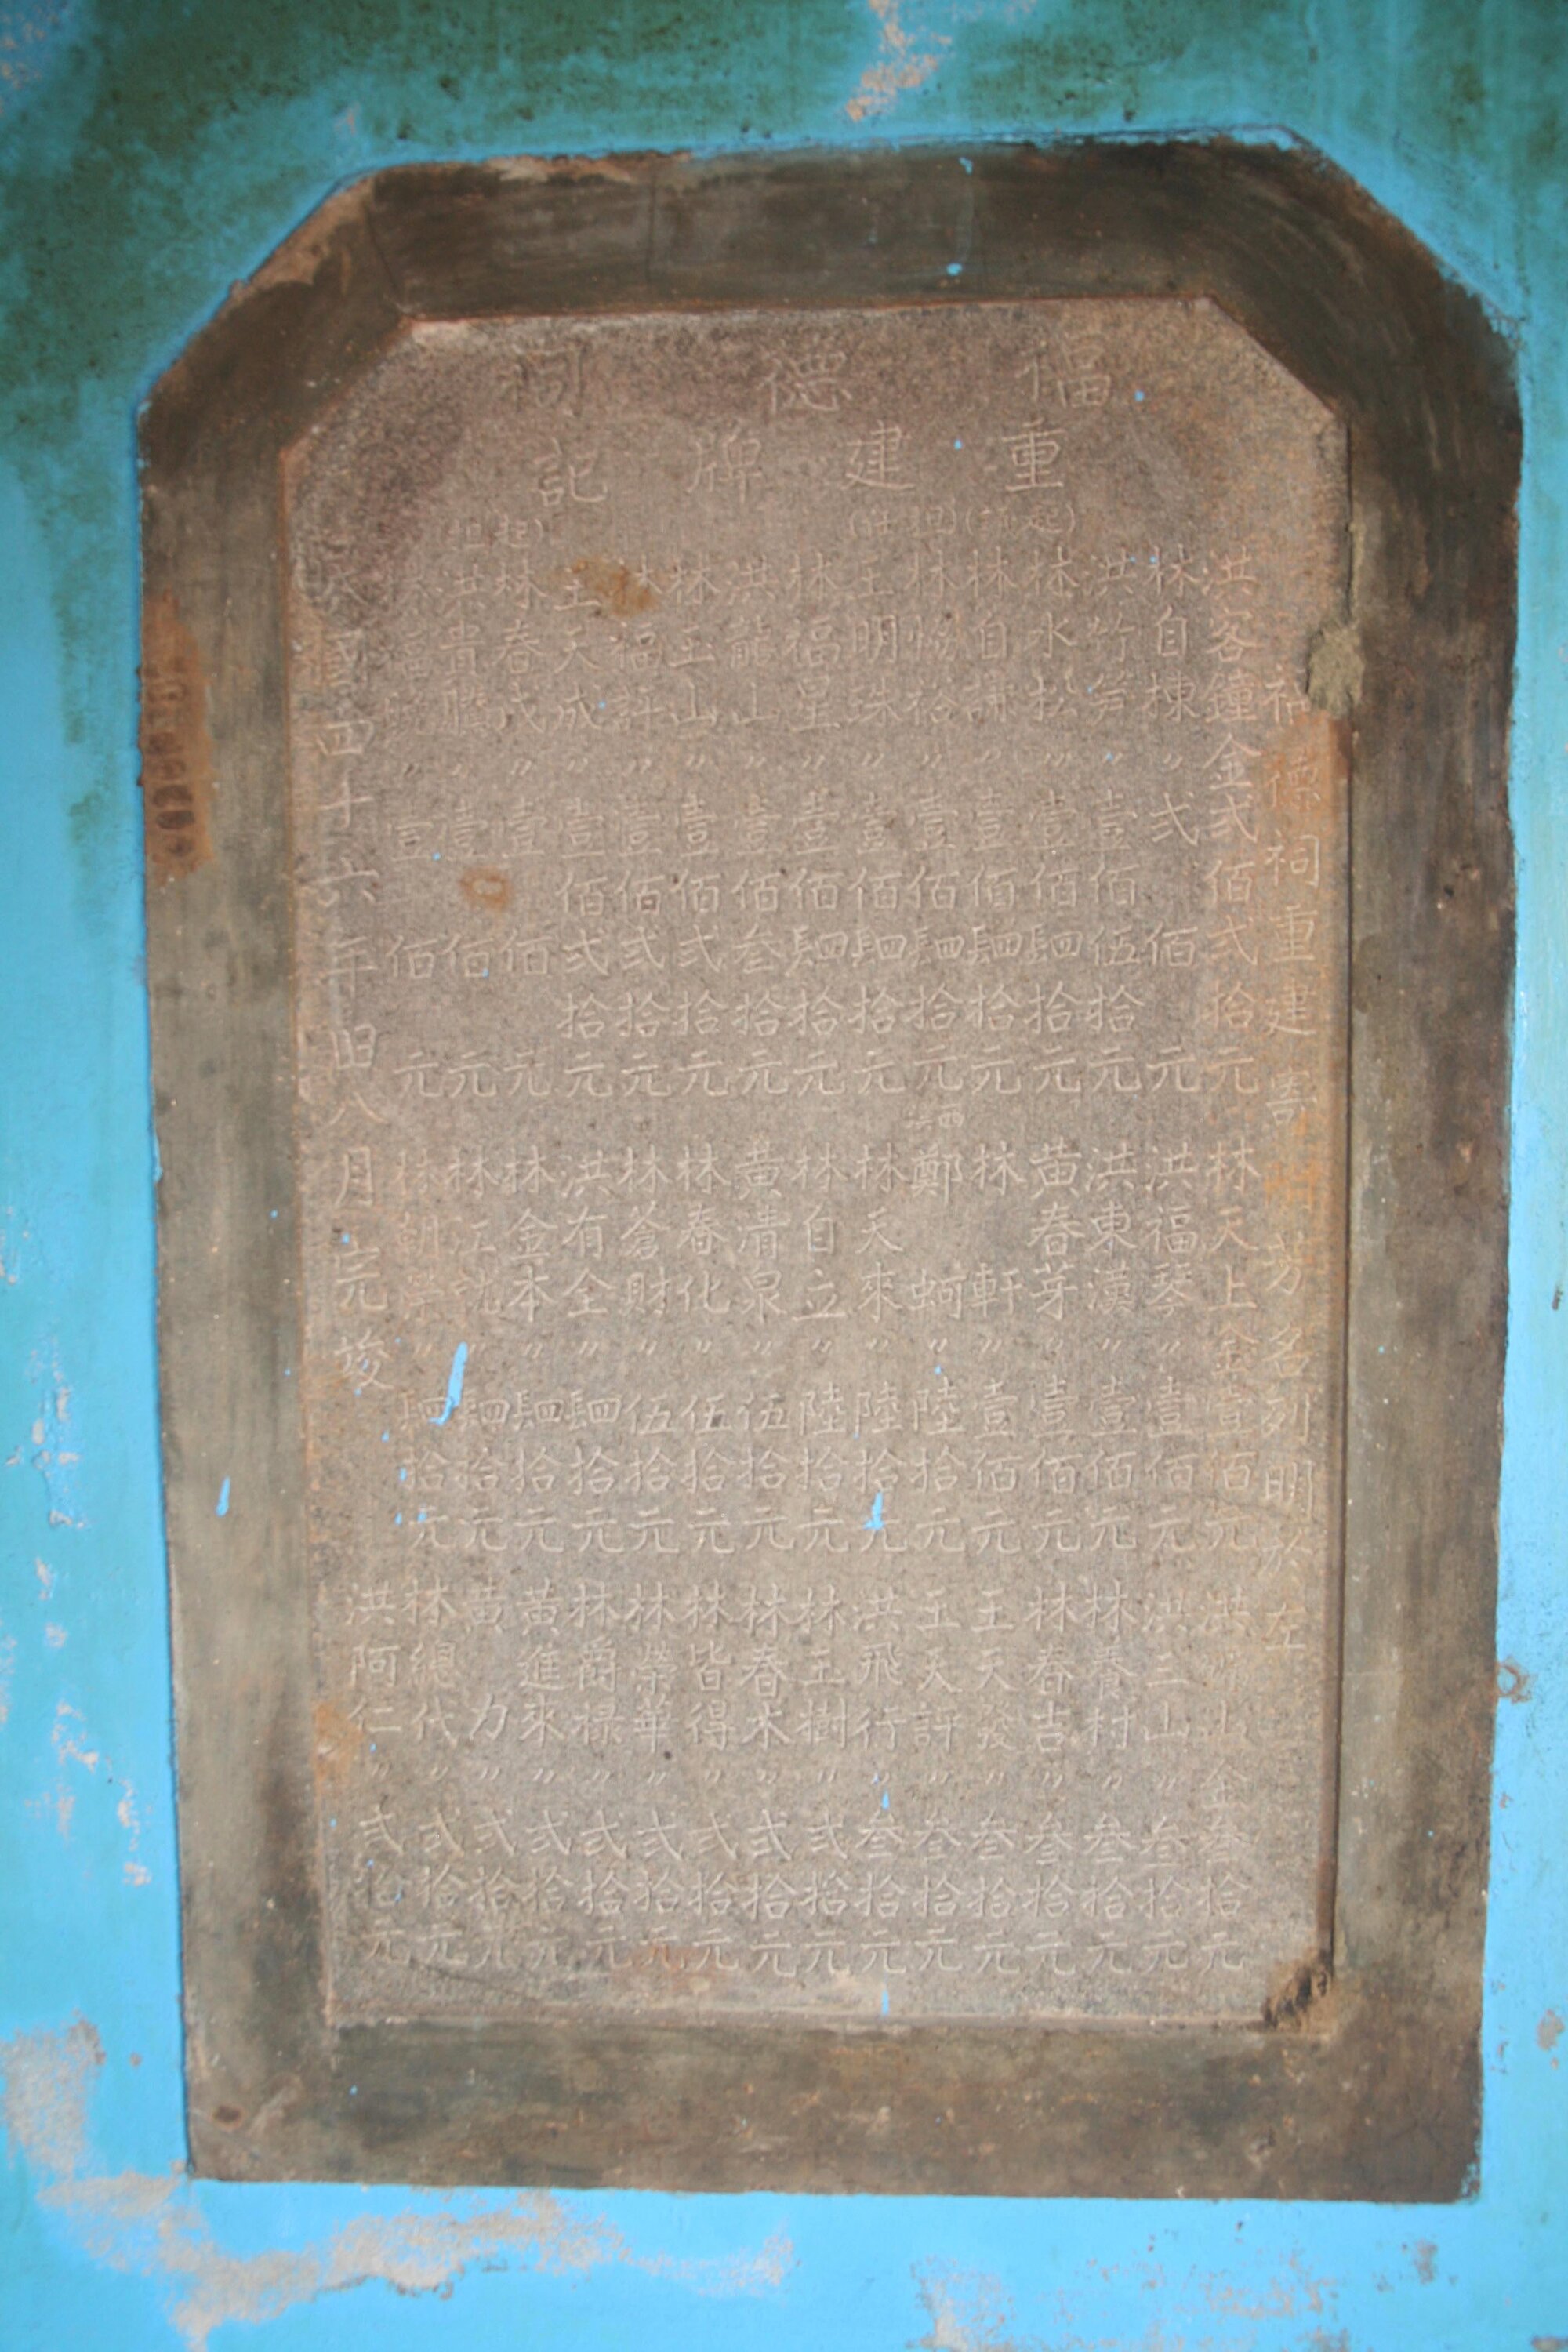 福德祠
重建牌記
福德祠重建芳名列明於左
洪客鐘金弍佰弍拾元 林天上金壹佰元 洪山金叁拾元
林自棟〃弍佰元 洪福琴〃壹佰元 洪三山〃叁拾元
洪竹笋〃壹佰伍拾元 洪東漢〃壹佰元 林養村〃叁拾元
林水松〃壹佰䦉拾元 黃春芽〃壹佰元 林春吉〃叁拾元
林自諒〃壹佰䦉拾元 林軒〃壹佰元 王天發〃叁拾元
林協裕〃壹佰䦉拾元 鄭蚵〃陸拾元 王天訝〃叁拾元
王明珠〃壹佰䦉拾元 林天來〃陸拾元 洪飛行〃叁拾元
林福星〃壹佰䦉拾元 林自立〃陸拾元 林玉樹〃弍拾元
洪龍山〃壹佰叁拾元 黃清泉〃伍拾元 林春木〃弍拾元
林玉山〃壹佰弍拾元 林春化〃伍拾元 林皆得〃弍拾元
林福訝〃壹佰弍拾元 林蒼財〃伍拾元 林榮華〃弍拾元
王天成〃壹佰弍拾元 洪有全〃䦉拾元 林爵祿〃弍拾元
林春成〃壹佰元 林金本〃䦉拾元 黃進來〃弍拾元
洪貴騰〃壹佰元 林江〃䦉拾元 黃力〃弍拾元
林福〃壹佰元 林朝榮〃䦉拾元 林總代〃弍拾元
民國四十六年旧八月完竣 洪阿仁〃弍拾元